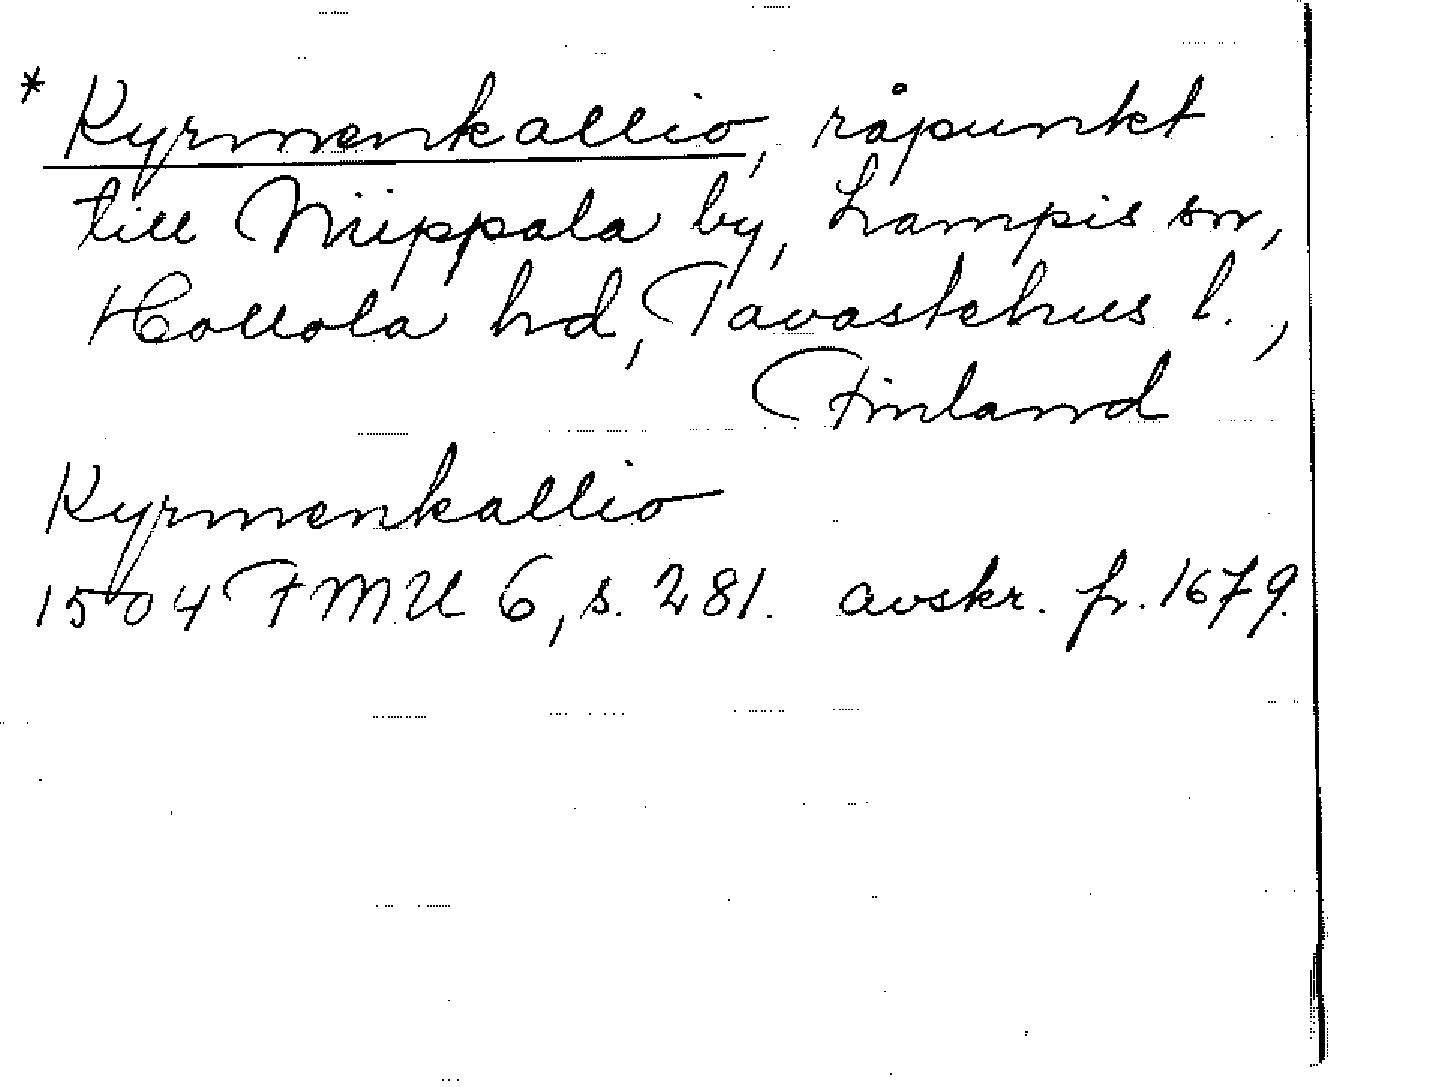 * Kyrmenkallio, råpunkt
till Niippala by, Lampis sn,
Hollola hd, Tavastehus l.,
Finland
Kyrmenkallio
1504 FMU 6, s. 281. avskr. fr. 1679.